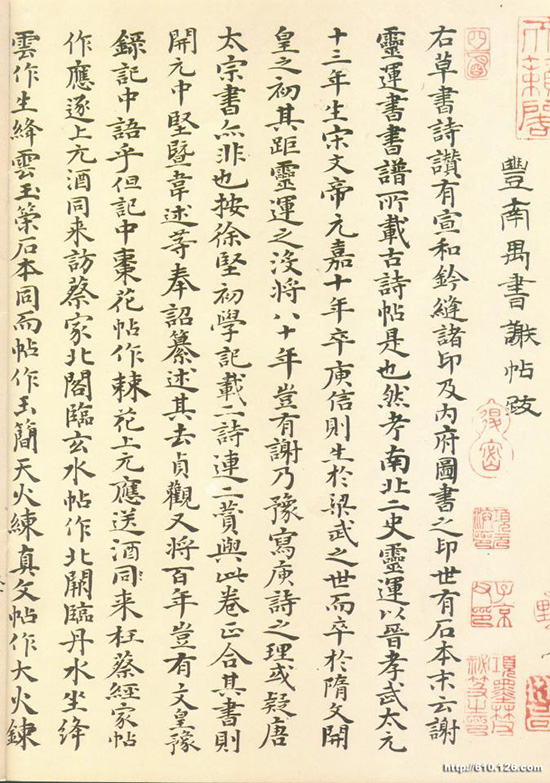 天籟閣
豐南禺書謝帖跋
項元汴印
子京父印
項墨林父秘笈之印
右草書詩讚有宣和鈐縫諸印及内府圖書之印世有石本末云謝
靈運書書譜所載古詩帖是也然考南北二史靈運以晉孝武太元
十三年生宋文帝元嘉十年卒庾信則生於梁武之世而卒於隋文開
皇之初其距靈運之沒將八十年豈有謝乃豫寫庾詩之理或疑唐
太宗書亦非也按徐堅初學記載二詩連二贊與此卷正合其書則
開元中堅暨韋述等奉詔纂述其去貞觀又將百年豈有文皇豫
錄記中語乎但記中棗花帖作棘花上元應送酒同来枉蔡經家帖
作應逐上元酒同来訪蔡家北閣臨玄水帖作北闕臨丹水坐絳
雲作生絳雲玉策石本同而帖作玉簡天火練真文帖作大火鍊
http://610.126.com